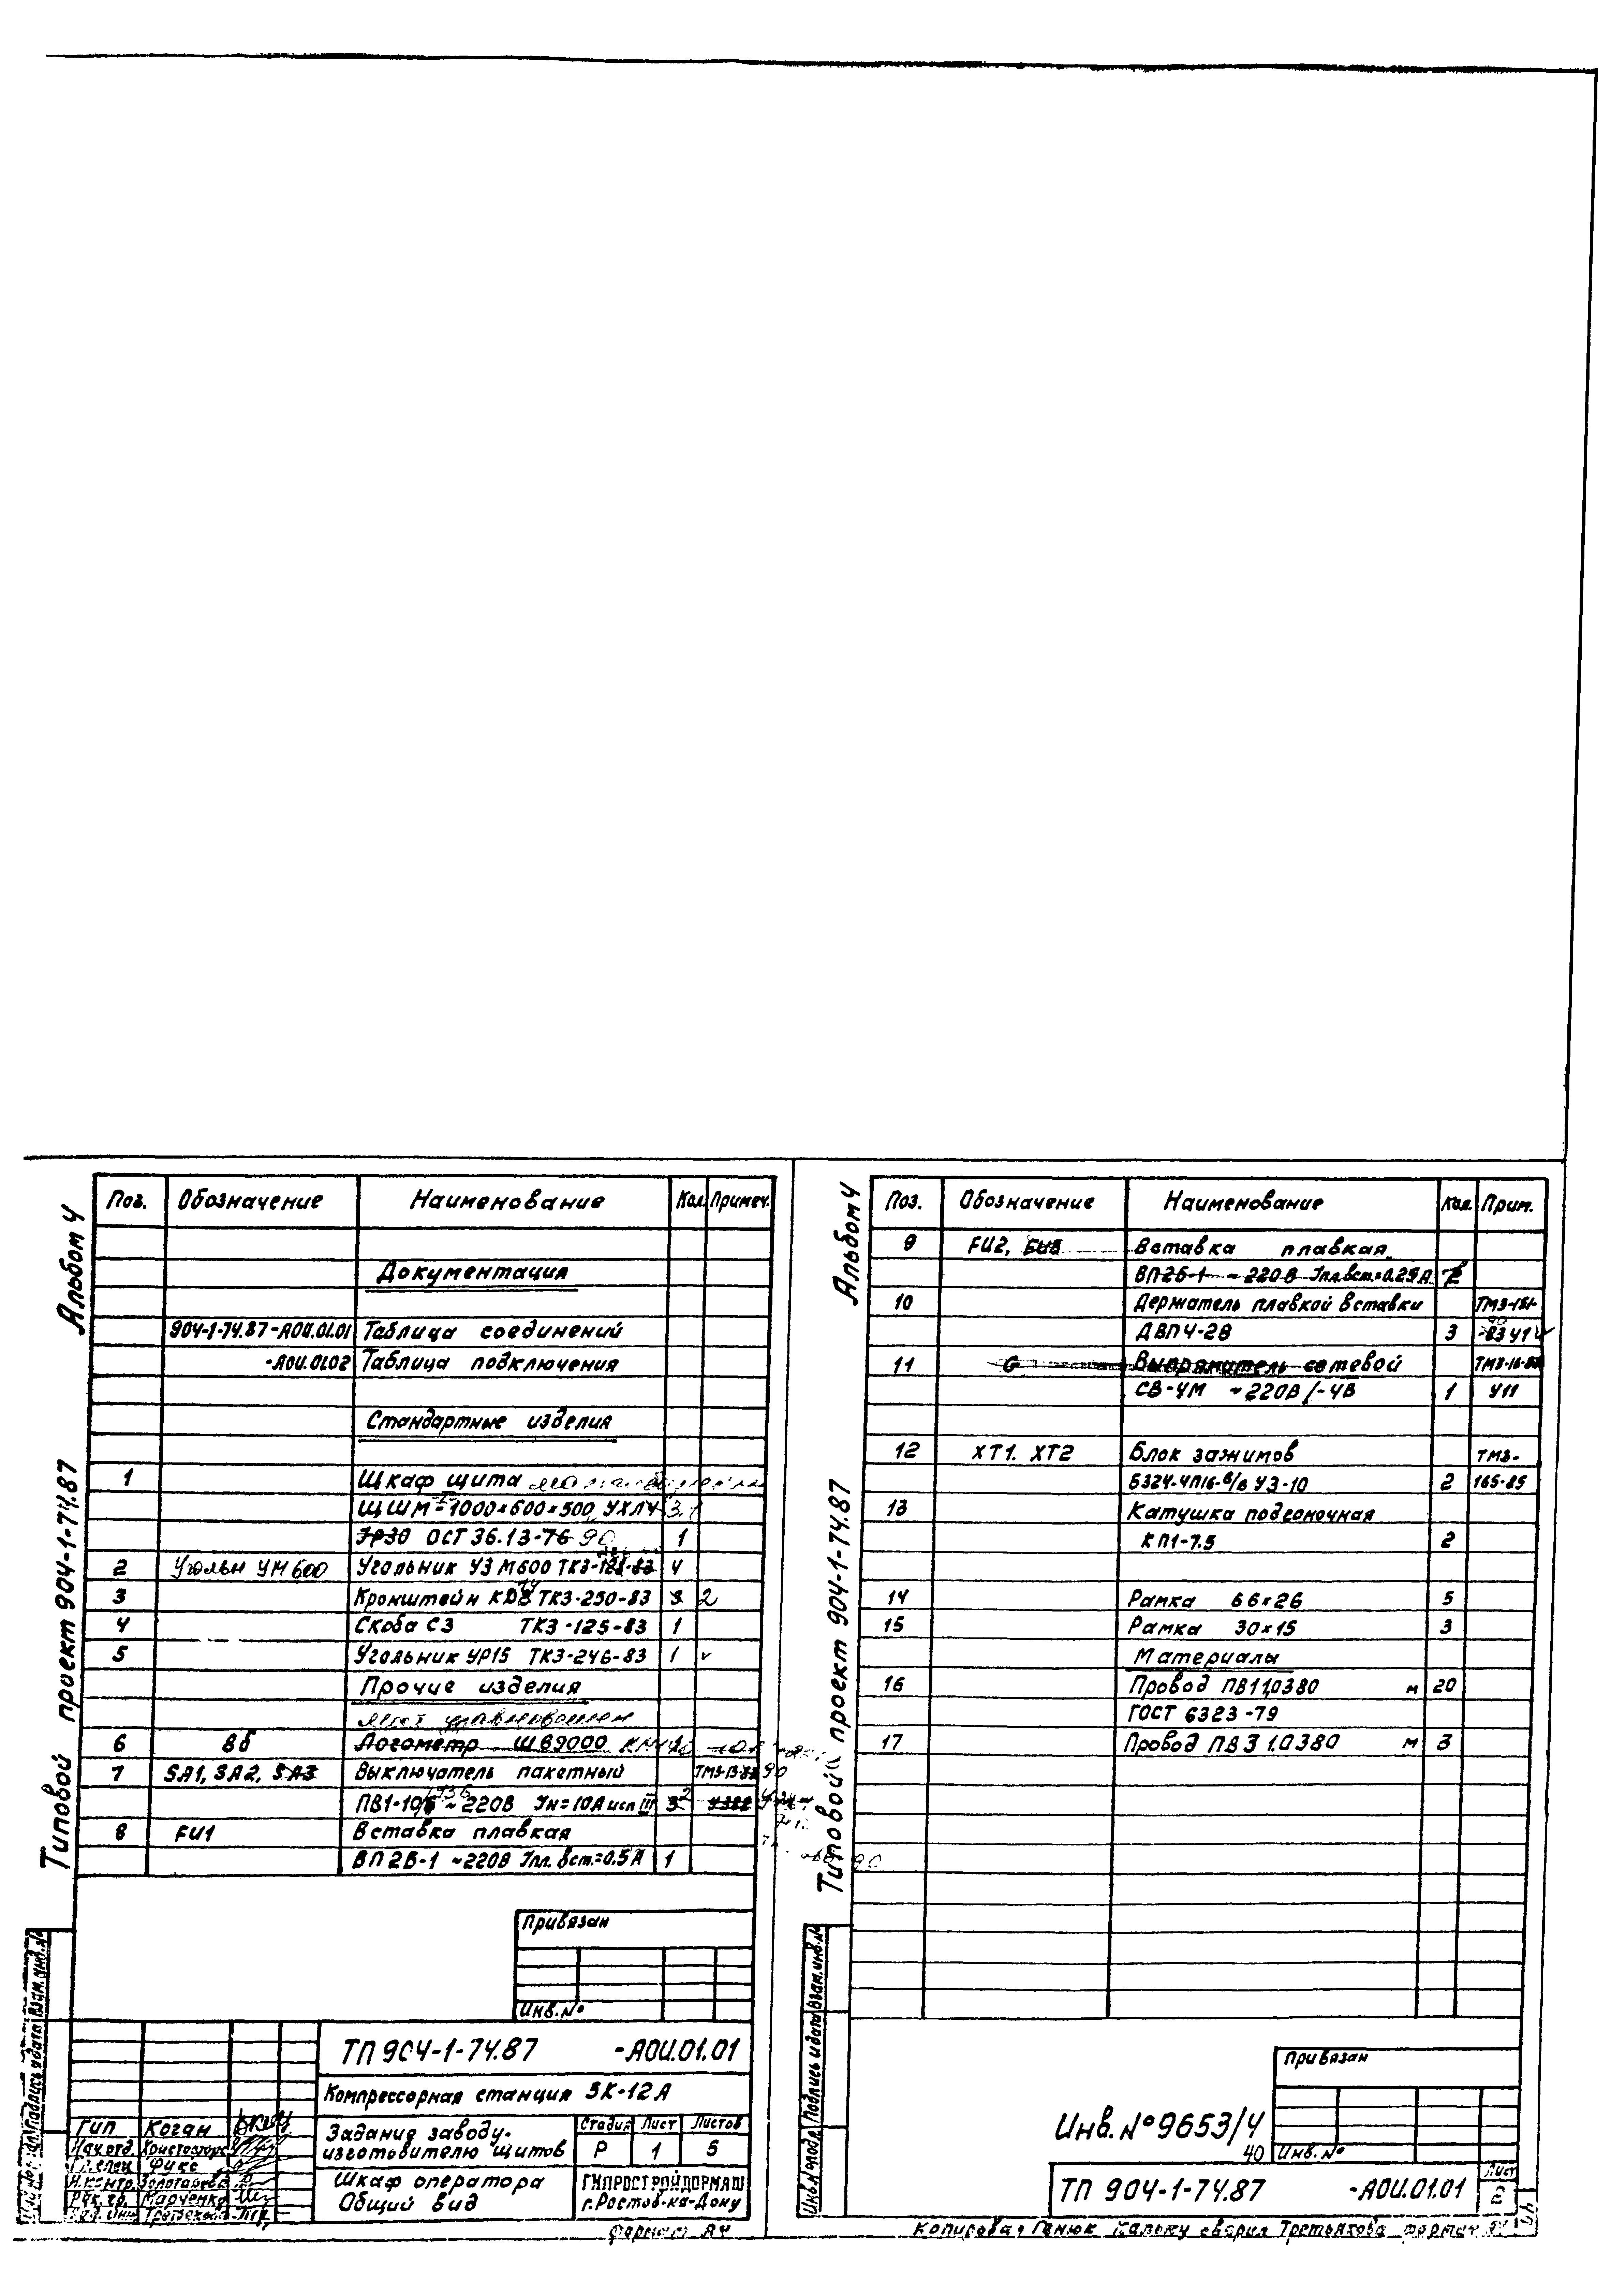 Альбом 4
Типовой проект 904-1-74.87
Поз. Обозначение Наименование Кол. Примеч.
Документация
904-1-74.87-АОИ.01.01 Таблица соединений
-АОИ.01.02 Таблица подключения
Стандартные изделия
1 Шкаф щита
ЩШМ-1000×600×500 УХЛ4
ЗР30 ОСТ 36.13-76 90 1
2 Угольн УМ600 Угольник УЗ М600 ТКЗ-128-83 4
3 Кронштейн ТКЗ-250-83 3 2
4 Скоба С3 ТКЗ-125-83 1
5 Угольник УР15 ТКЗ-246-83 1 v
Прочие изделия
мост уравновешен
6 8б Логометр Ш69000
7 SA1, SA2, SA3 Выключатель пакетный ТМ3-13-83 90
ПВ1-10 ~220В Iн=10А исп III 3 2
8 FU1 Вставка плавкая
ВП2Б-1 ~220В Iпл. вст.=0.5А 1
Привязан
Инв. №
ТП 904-1-74.87 -АОИ.01.01
Компрессорная станция 5К-12А
Задание заводу-
изготовителю щитов
Стадия Лист Листов
Р 1 5
Шкаф оператора
Общий вид
ГИПРОСТРОЙДОРМАШ
г.Ростов-на-Дону
ГИП Коган
Нач.отд.
Гл.спец Фикс
Н.контр. Золотарева
Рук. гр. Марченко
Третьякова
Формат А4
Альбом 4
Типовой проект 904-1-74.87
Поз. Обозначение Наименование Кол. Прим.
9 FU2, FU3 Вставка плавкая
ВП2Б-1 ~220В Iпл.вст.=0.25А 2
10 Держатель плавкой вставки ТМ3-151-
ДВП4-2В 3 -83 У1
11 G Выпрямитель сетевой ТМ3-16-83
СВ-4М ~220В/-4В 1 У11
12 ХТ1. ХТ2 Блок зажимов ТМ3-
Б324-4П16-В/В У3-10 2 165-85
13 Катушка подгоночная
КП1-7.5 2
14 Рамка 66×26 5
15 Рамка 30×15 3
Материалы
16 Провод ПВ1 1,0 380 м 20
ГОСТ 6323-79
17 Провод ПВ3 1.0 380 м 3
Подпись и дата Взам.инв.№
Привязан
Инв. № 9653/4
40 Инв. №
ТП 904-1-74.87 -АОИ.01.01
Лист
2
Копировал Генюк Кальку сварил Третьякова Формат А4